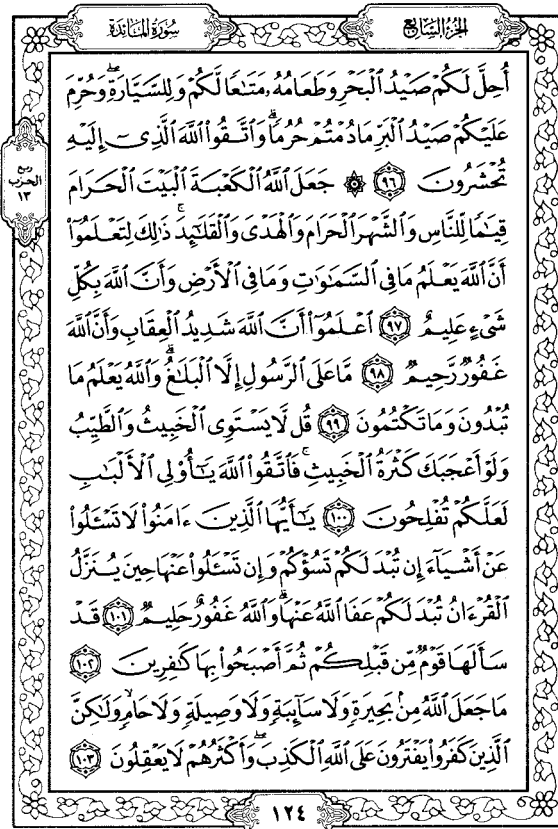 سُورَةُ المَائدَة
الجُزءُ السَّابِع
أُحِلَّ لَكُمْ صَيْدُ ٱلْبَحْرِ وَطَعَامُهُۥ مَتَٰعًا لَّكُمْ وَلِلسَّيَّارَةِۖ وَحُرِّمَ
عَلَيْكُمْ صَيْدُ ٱلْبَرِّ مَا دُمْتُمْ حُرُمًاۗ وَٱتَّقُوا۟ ٱللَّهَ ٱلَّذِىٓ إِلَيْهِ
تُحْشَرُونَ ٩٦ ۞ جَعَلَ ٱللَّهُ ٱلْكَعْبَةَ ٱلْبَيْتَ ٱلْحَرَامَ
قِيَٰمًا لِّلنَّاسِ وَٱلشَّهْرَ ٱلْحَرَامَ وَٱلْهَدْىَ وَٱلْقَلَٰٓئِدَۚ ذَٰلِكَ لِتَعْلَمُوٓا۟
أَنَّ ٱللَّهَ يَعْلَمُ مَا فِى ٱلسَّمَٰوَٰتِ وَمَا فِى ٱلْأَرْضِ وَأَنَّ ٱللَّهَ بِكُلِّ
شَىْءٍ عَلِيمٌ ٩٧ ٱعْلَمُوٓا۟ أَنَّ ٱللَّهَ شَدِيدُ ٱلْعِقَابِ وَأَنَّ ٱللَّهَ
غَفُورٌ رَّحِيمٌ ٩٨ مَّا عَلَى ٱلرَّسُولِ إِلَّا ٱلْبَلَٰغُۗ وَٱللَّهُ يَعْلَمُ مَا
تُبْدُونَ وَمَا تَكْتُمُونَ ٩٩ قُل لَّا يَسْتَوِى ٱلْخَبِيثُ وَٱلطَّيِّبُ
وَلَوْ أَعْجَبَكَ كَثْرَةُ ٱلْخَبِيثِۚ فَٱتَّقُوا۟ ٱللَّهَ يَٰٓأُو۟لِى ٱلْأَلْبَٰبِ
لَعَلَّكُمْ تُفْلِحُونَ ١٠٠ يَٰٓأَيُّهَا ٱلَّذِينَ ءَامَنُوا۟ لَا تَسْـَٔلُوا۟
عَنْ أَشْيَآءَ إِن تُبْدَ لَكُمْ تَسُؤْكُمْ وَإِن تَسْـَٔلُوا۟ عَنْهَا حِينَ يُنَزَّلُ
ٱلْقُرْءَانُ تُبْدَ لَكُمْ عَفَا ٱللَّهُ عَنْهَاۗ وَٱللَّهُ غَفُورٌ حَلِيمٌ ١٠١ قَدْ
سَأَلَهَا قَوْمٌ مِّن قَبْلِكُمْ ثُمَّ أَصْبَحُوا۟ بِهَا كَٰفِرِينَ ١٠٢
مَا جَعَلَ ٱللَّهُ مِنۢ بَحِيرَةٍ وَلَا سَآئِبَةٍ وَلَا وَصِيلَةٍ وَلَا حَامٍۙ وَلَٰكِنَّ
ٱلَّذِينَ كَفَرُوا۟ يَفْتَرُونَ عَلَى ٱللَّهِ ٱلْكَذِبَۖ وَأَكْثَرُهُمْ لَا يَعْقِلُونَ ١٠٣
ربع
الحزب
١٣
١٢٤